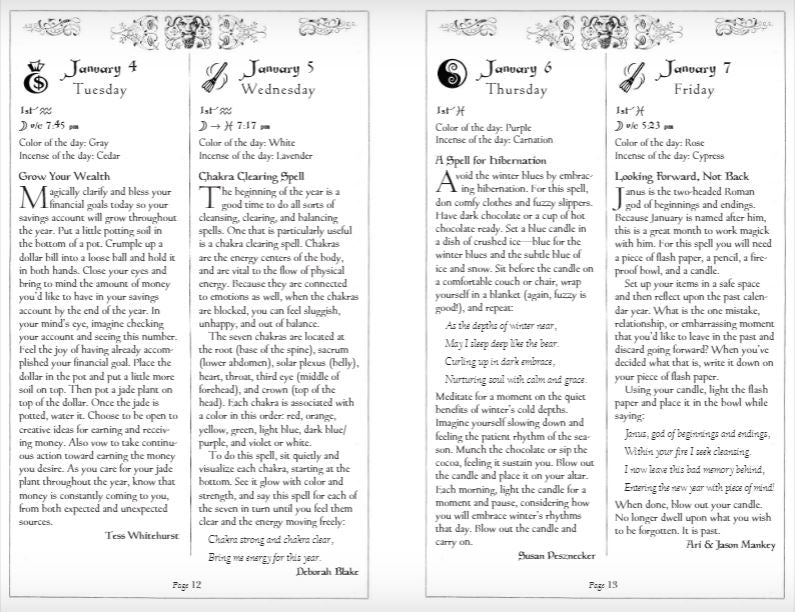 January 4
Tuesday
1st ♒
☽ v/c 7:45 pm
Color of the day: Gray
Incense of the day: Cedar
Grow Your Wealth
Magically clarify and bless your
financial goals today so your
savings account will grow throughout
the year. Put a little potting soil in
the bottom of a pot. Crumple up a
dollar bill into a loose ball and hold it
in both hands. Close your eyes and
bring to mind the amount of money
you'd like to have in your savings
account by the end of the year. In
your mind's eye, imagine checking
your account and seeing this number.
Feel the joy of having already accom-
plished your financial goal. Place the
dollar in the pot and put a little more
soil on top. Then put a jade plant on
top of the dollar. Once the jade is
potted, water it. Choose to be open to
creative ideas for earning and receiv-
ing money. Also vow to take continu-
ous action toward earning the money
you desire. As you care for your jade
plant throughout the year, know that
money is constantly coming to you,
from both expected and unexpected
sources.
Tess Whitehurst
January 5
Wednesday
1st ♒
☽ → ♓ 7:17 pm
Color of the day: White
Incense of the day: Lavender
Chakra Clearing Spell
The beginning of the year is a
good time to do all sorts of
cleansing, clearing, and balancing
spells. One that is particularly useful
is a chakra clearing spell. Chakras
are the energy centers of the body,
and are vital to the flow of physical
energy. Because they are connected
to emotions as well, when the chakras
are blocked, you can feel sluggish,
unhappy, and out of balance.
The seven chakras are located at
the root (base of the spine), sacrum
(lower abdomen), solar plexus (belly),
heart, throat, third eye (middle of
forehead), and crown (top of the
head). Each chakra is associated with
a color in this order: red, orange,
yellow, green, light blue, dark blue/
purple, and violet or white.
To do this spell, sit quietly and
visualize each chakra, starting at the
bottom. See it glow with color and
strength, and say this spell for each of
the seven in turn until you feel them
clear and the energy moving freely:
Chakra strong and chakra clear,
Bring me energy for this year.
Deborah Blake
Page 12
January 6
Thursday
1st ♓
Color of the day: Purple
Incense of the day: Carnation
A Spell for Hibernation
Avoid the winter blues by embrac-
ing hibernation. For this spell,
don comfy clothes and fuzzy slippers.
Have dark chocolate or a cup of hot
chocolate ready. Set a blue candle in
a dish of crushed ice—blue for the
winter blues and the subtle blue of
ice and snow. Sit before the candle on
a comfortable couch or chair, wrap
yourself in a blanket (again, fuzzy is
good!), and repeat:
As the depths of winter near,
May I sleep deep like the bear.
Curling up in dark embrace,
Nurturing soul with calm and grace.
Meditate for a moment on the quiet
benefits of winter's cold depths.
Imagine yourself slowing down and
feeling the patient rhythm of the sea-
son. Munch the chocolate or sip the
cocoa, feeling it sustain you. Blow out
the candle and place it on your altar.
Each morning, light the candle for a
moment and pause, considering how
you will embrace winter's rhythms
that day. Blow out the candle and
carry on.
Susan Pesznecker
January 7
Friday
1st ♓
☽ v/c 5:23 pm
Color of the day: Rose
Incense of the day: Cypress
Looking Forward, Not Back
Janus is the two-headed Roman
god of beginnings and endings.
Because January is named after him,
this is a great month to work magick
with him. For this spell you will need
a piece of flash paper, a pencil, a fire-
proof bowl, and a candle.
Set up your items in a safe space
and then reflect upon the past calen-
dar year. What is the one mistake,
relationship, or embarrassing moment
that you'd like to leave in the past and
discard going forward? When you've
decided what that is, write it down on
your piece of flash paper.
Using your candle, light the flash
paper and place it in the bowl while
saying:
Janus, god of beginnings and endings,
Within your fire I seek cleansing.
I now leave this bad memory behind,
Entering the new year with piece of mind!
When done, blow out your candle.
No longer dwell upon what you wish
to be forgotten. It is past.
Ari & Jason Mankey
Page 13